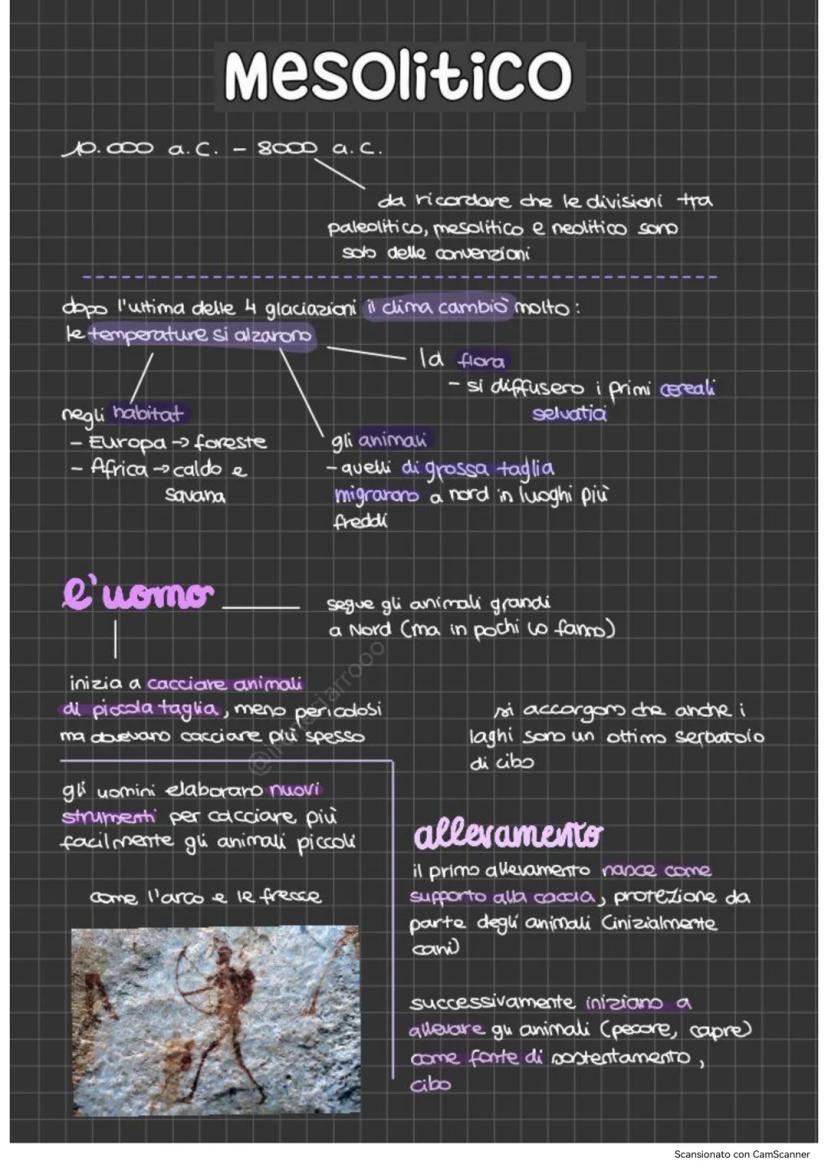 Mesolitico
10.000 a.C. – 8000 a.C.
da ricordare che le divisioni tra
paleolitico, mesolitico e neolitico sono
solo delle convenzioni
dopo l'ultima delle 4 glaciazioni il clima cambiò molto:
le temperature si alzarono
la flora
- si diffusero i primi cereali
selvatici
negli habitat
- Europa → foreste
- Africa → caldo e
savana
gli animali
- quelli di grossa taglia
migrarono a nord in luoghi più
freddi
l'uomo
segue gli animali grandi
a Nord (ma in pochi lo fanno)
inizia a cacciare animali
di piccola taglia, meno pericolosi
ma dovevano cacciare più spesso
si accorgono che anche i
laghi sono un ottimo serbatoio
di cibo
gli uomini elaborano nuovi
strumenti per cacciare più
facilmente gli animali piccoli
come l'arco e le frecce
allevamento
il primo allevamento nasce come
supporto alla caccia, protezione da
parte degli animali (inizialmente
cani)
successivamente iniziano a
allevare gli animali (pecore, capre)
come fonte di sostentamento,
cibo
Scansionato con CamScanner